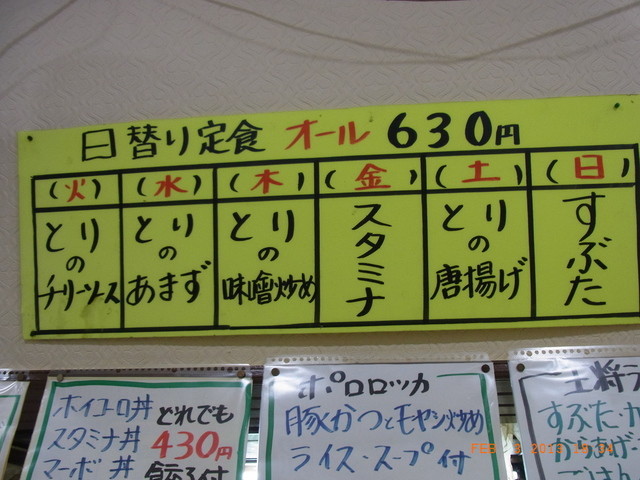 日替り定食 オール 630円
(火) (水) (木) (金) (土) (日)
とりのチリーソース
とりのあまず
とりの味噌炒め
スタミナ
とりの唐揚げ
すぶた
ホイコーロ丼
スタミナ丼
マーボ丼
どれでも
430円
ポロロッカ
豚かつとモヤシ炒め
ライス・スープ付
すぶた
ごはん